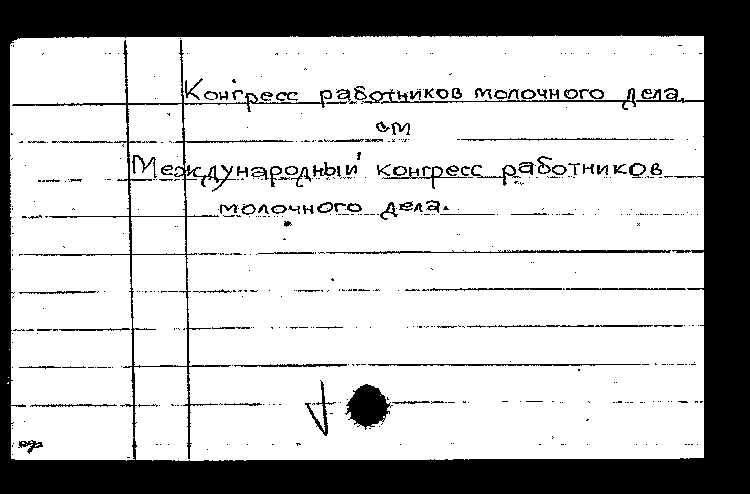 Конгресс работников молочного дела.
см
Международный конгресс работников
молочного дела.